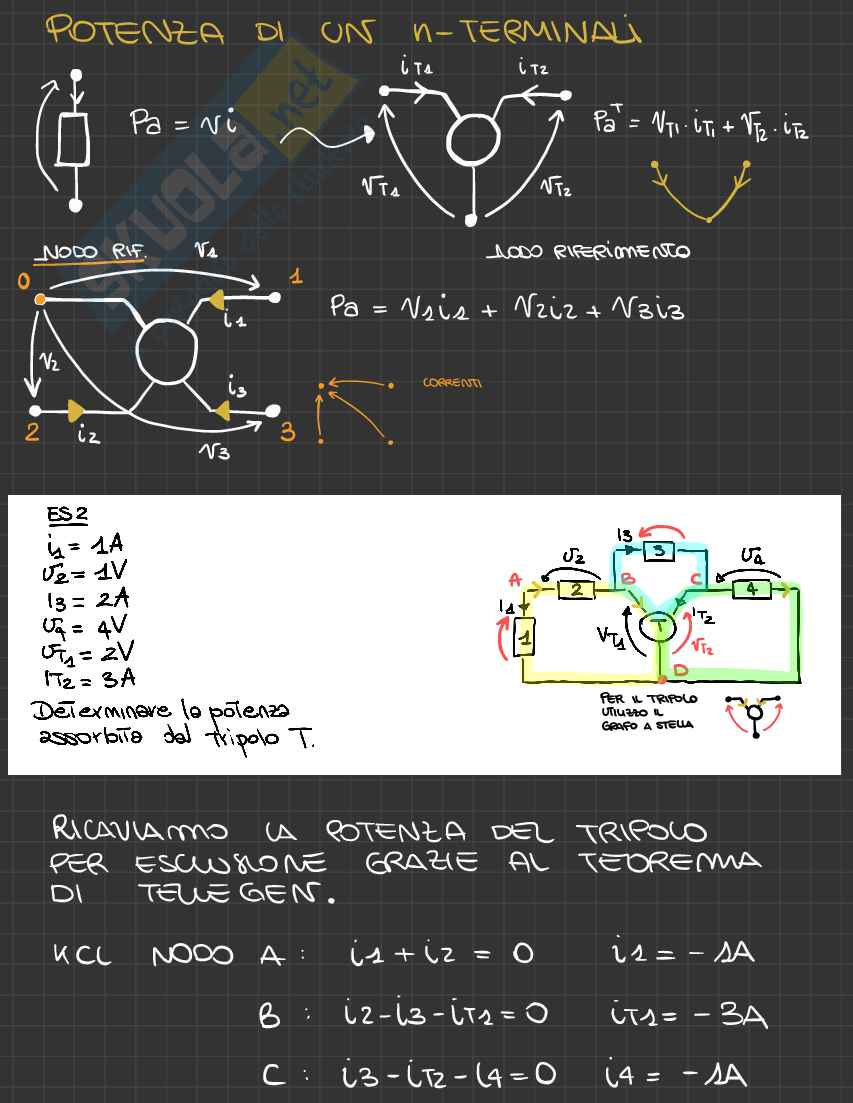 POTENZA DI UN n-TERMINALI
iT1 iT2
Pa = vi
PaT = vT1 · iT1 + vT2 · iT2
vT1 vT2
SKUOLA.net
NODO RIF. v1
NODO RIFERIMENTO
0 1
i1
Pa = v1i1 + v2i2 + v3i3
v2
i3
CORRENTI
2 i2 3
v3
ES2
i1 = 1A
v2 = 1V
i3 = 2A
v4 = 4V
vT1 = 2V
iT2 = 3A
Determinare la potenza
assorbita dal tripolo T.
i3
3
v2 v4
A B C
2 4
i1 iT2
1 VT1 T vT2
D
PER IL TRIPOLO
UTILIZZO IL
GRAFO A STELLA
RICAVIAMO LA POTENZA DEL TRIPOLO
PER ESCLUSIONE GRAZIE AL TEOREMA
DI TELLEGEN.
KCL NODO A : i1 + i2 = 0 i2 = - 1A
B : i2 - i3 - iT1 = 0 iT1 = - 3A
C : i3 - iT2 - i4 = 0 i4 = - 1A